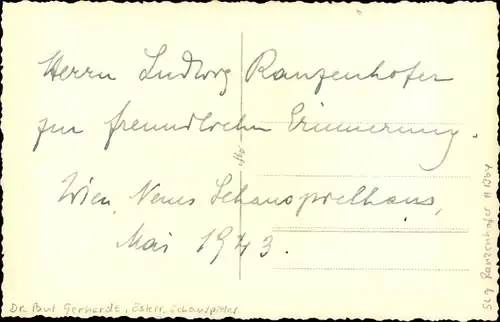 Herrn Ludwig Ranzenhofer
zur freundlichen Erinnerung.
Wien, Neues Schauspielhaus,
Mai 1943.
Dr. Paul Gerhardt, österr. Schauspieler
SLg Ranzenhofer # 1364